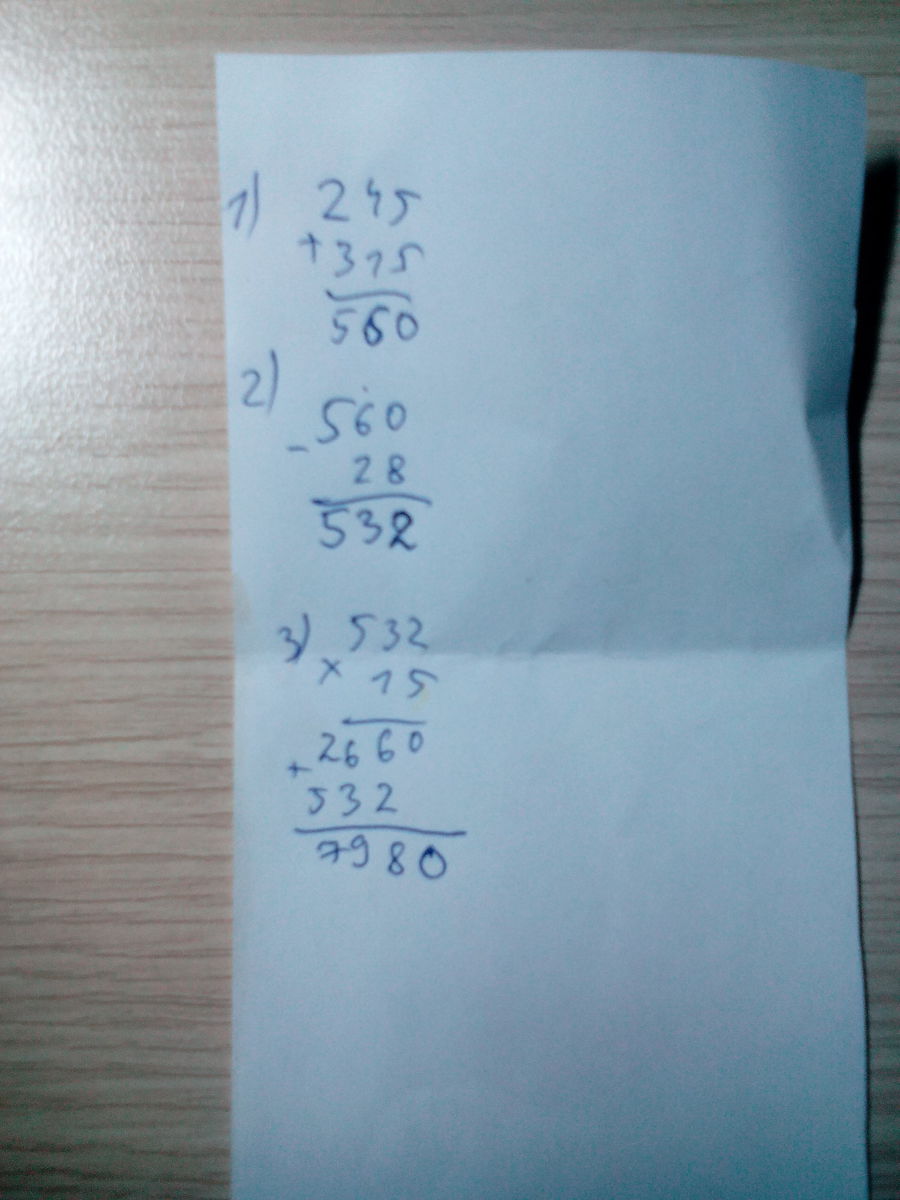 1) 245
+315
560
2)
560
- 28
532
3) 532
x 15
2660
+
532
7980